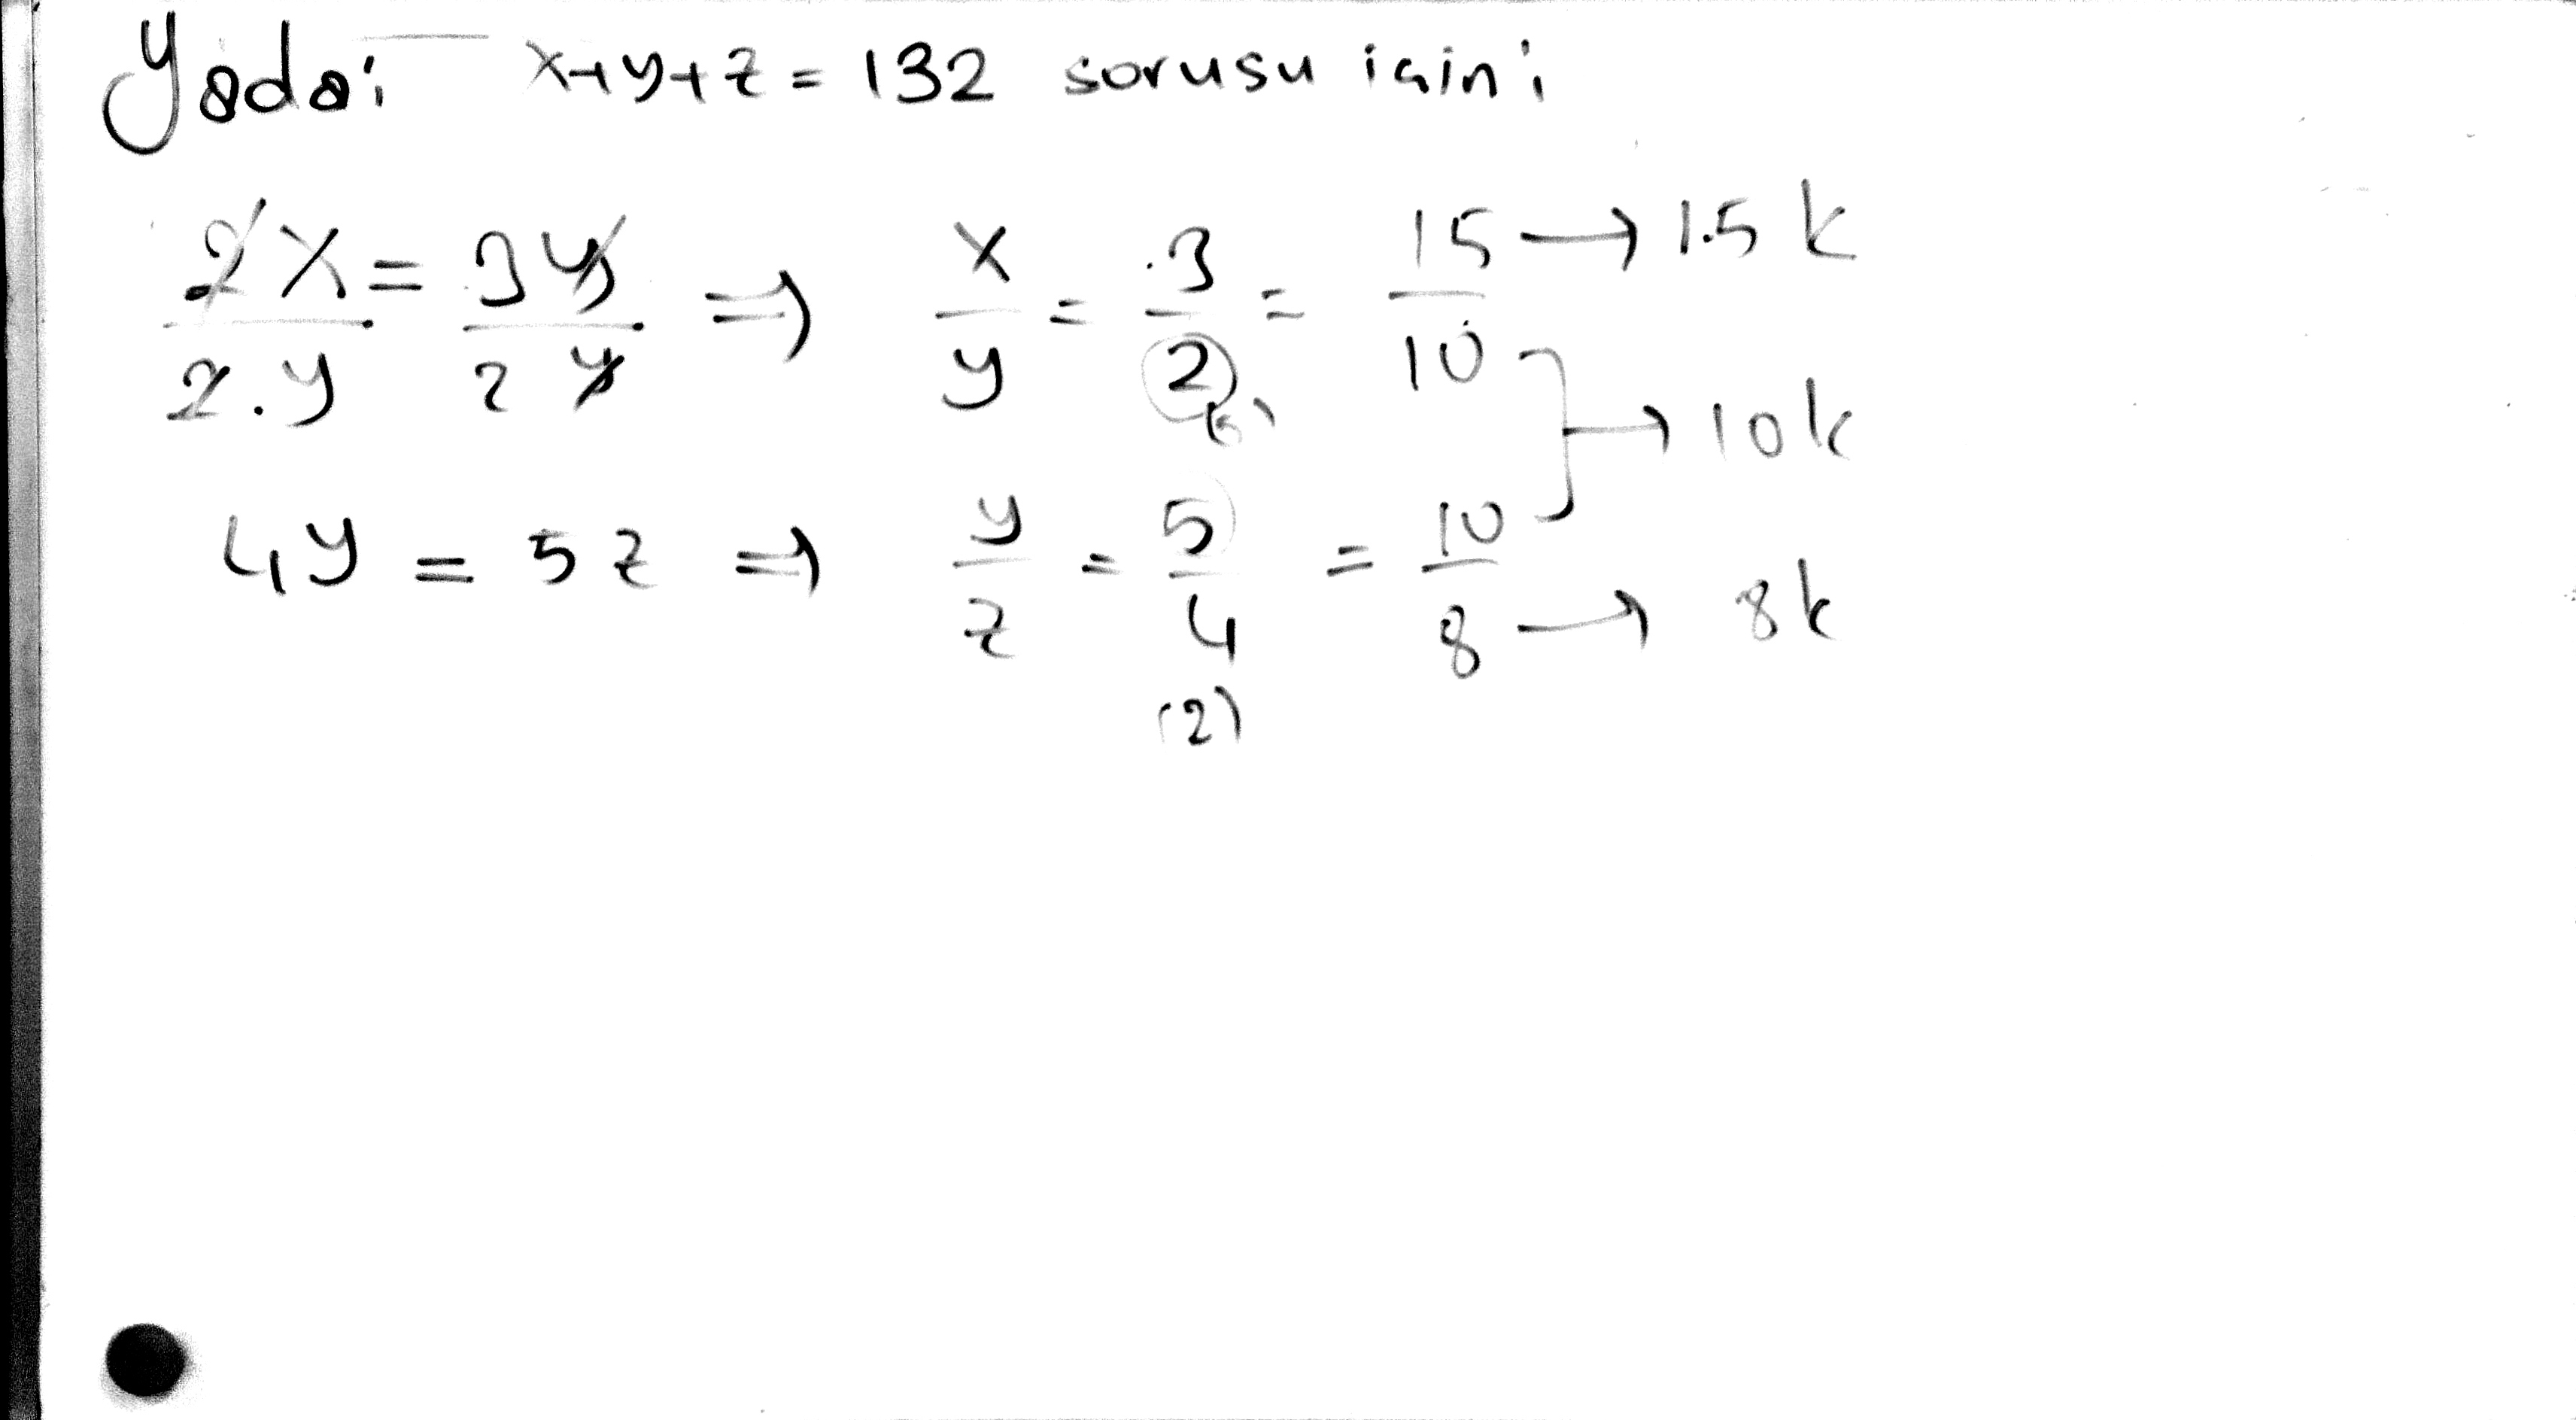 Yada: x+y+z = 132 sorusu için:
2x/2.y = 3y/2y => x/y = 3/2 (5) = 15/10 → 1.5 k
] → 10k
4y = 5z => y/z = 5/4 (2) = 10/8 → 8k